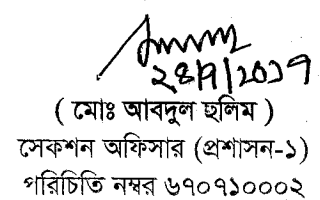 ২৪/৭/২০১৭
( মোঃ আবদুল ছলিম )
সেকশন অফিসার (প্রশাসন-১)
পরিচিতি নম্বর ৬৭০৭১০০০২